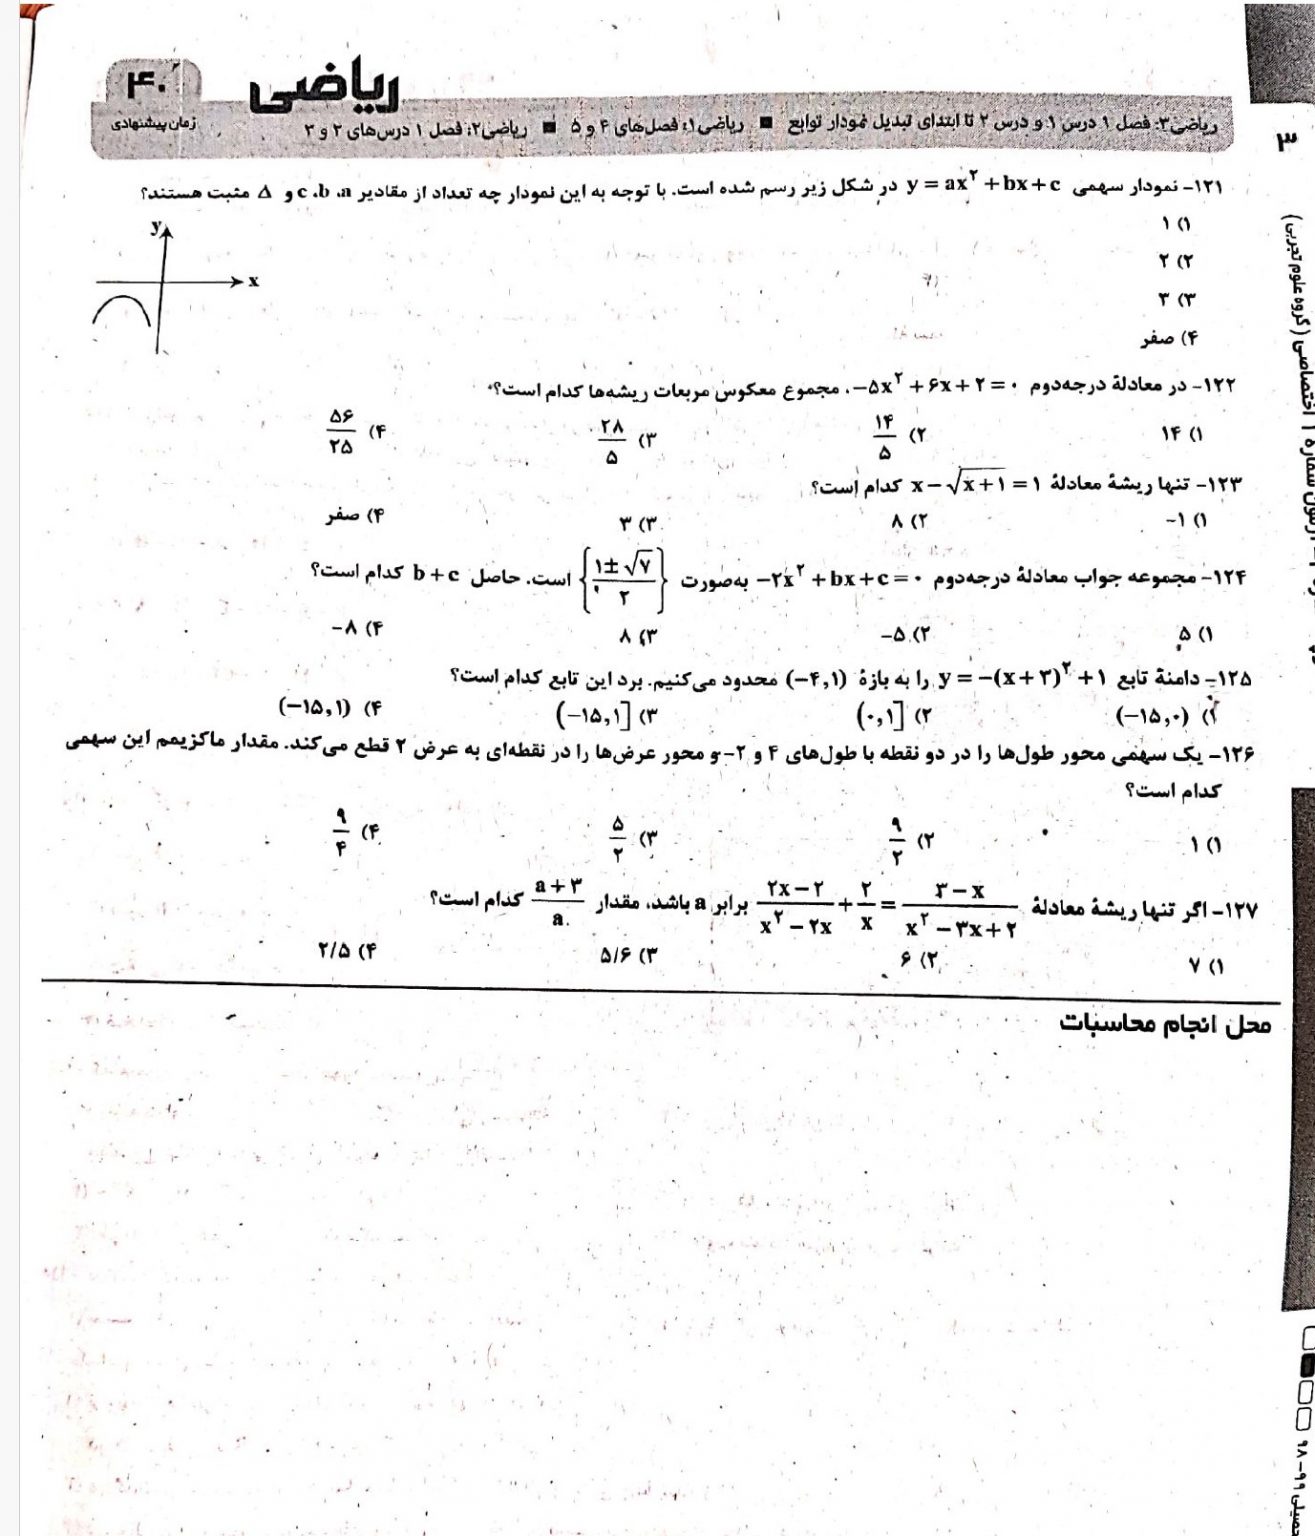 ریاضی
۴۰
زمان پیشنهادی
ریاضی۳: فصل ۱ درس ۱ و درس ۲ تا ابتدای تبدیل نمودار توابع ■ ریاضی۱: فصل‌های ۴ و ۵ ■ ریاضی۲: فصل ۱ درس‌های ۲ و ۳
۳
۱۲۱- نمودار سهمی y = ax² + bx + c در شکل زیر رسم شده است. با توجه به این نمودار چه تعداد از مقادیر a، b، c و Δ مثبت هستند؟
۱) ۱
۲) ۲
۳) ۳
۴) صفر
y
x
۱۲۲- در معادلهٔ درجه‌دوم -۵x² + ۶x + ۲ = ۰، مجموع معکوس مربعات ریشه‌ها کدام است؟
۱) ۱۴ ۲) ۱۴/۵ ۳) ۲۸/۵ ۴) ۵۶/۲۵
۱۲۳- تنها ریشهٔ معادلهٔ x - √(x+۱) = ۱ کدام است؟
۱) -۱ ۲) ۸ ۳) ۳ ۴) صفر
۱۲۴- مجموعه جواب معادلهٔ درجه‌دوم -۲x² + bx + c = ۰ به‌صورت {(۱±√۷)/۲} است. حاصل b + c کدام است؟
۱) ۵ ۲) -۵ ۳) ۸ ۴) -۸
۱۲۵- دامنهٔ تابع y = -(x+۳)² + ۱ را به بازهٔ (-۴,۱) محدود می‌کنیم. برد این تابع کدام است؟
۱) (-۱۵,۰) ۲) (۰,۱] ۳) (-۱۵,۱] ۴) (-۱۵,۱)
۱۲۶- یک سهمی محور طول‌ها را در دو نقطه با طول‌های ۴ و ۲- و محور عرض‌ها را در نقطه‌ای به عرض ۲ قطع می‌کند. مقدار ماکزیمم این سهمی
کدام است؟
۱) ۱ ۲) ۹/۲ ۳) ۵/۲ ۴) ۹/۴
۱۲۷- اگر تنها ریشهٔ معادلهٔ (۲x-۲)/(x²-۲x) + ۲/x = (۳-x)/(x²-۳x+۲) برابر a باشد، مقدار (a+۳)/a کدام است؟
۱) ۷ ۲) ۶ ۳) ۵/۶ ۴) ۲/۵
محل انجام محاسبات
اختصاصی (گروه علوم تجربی)
۹۸-۹۹